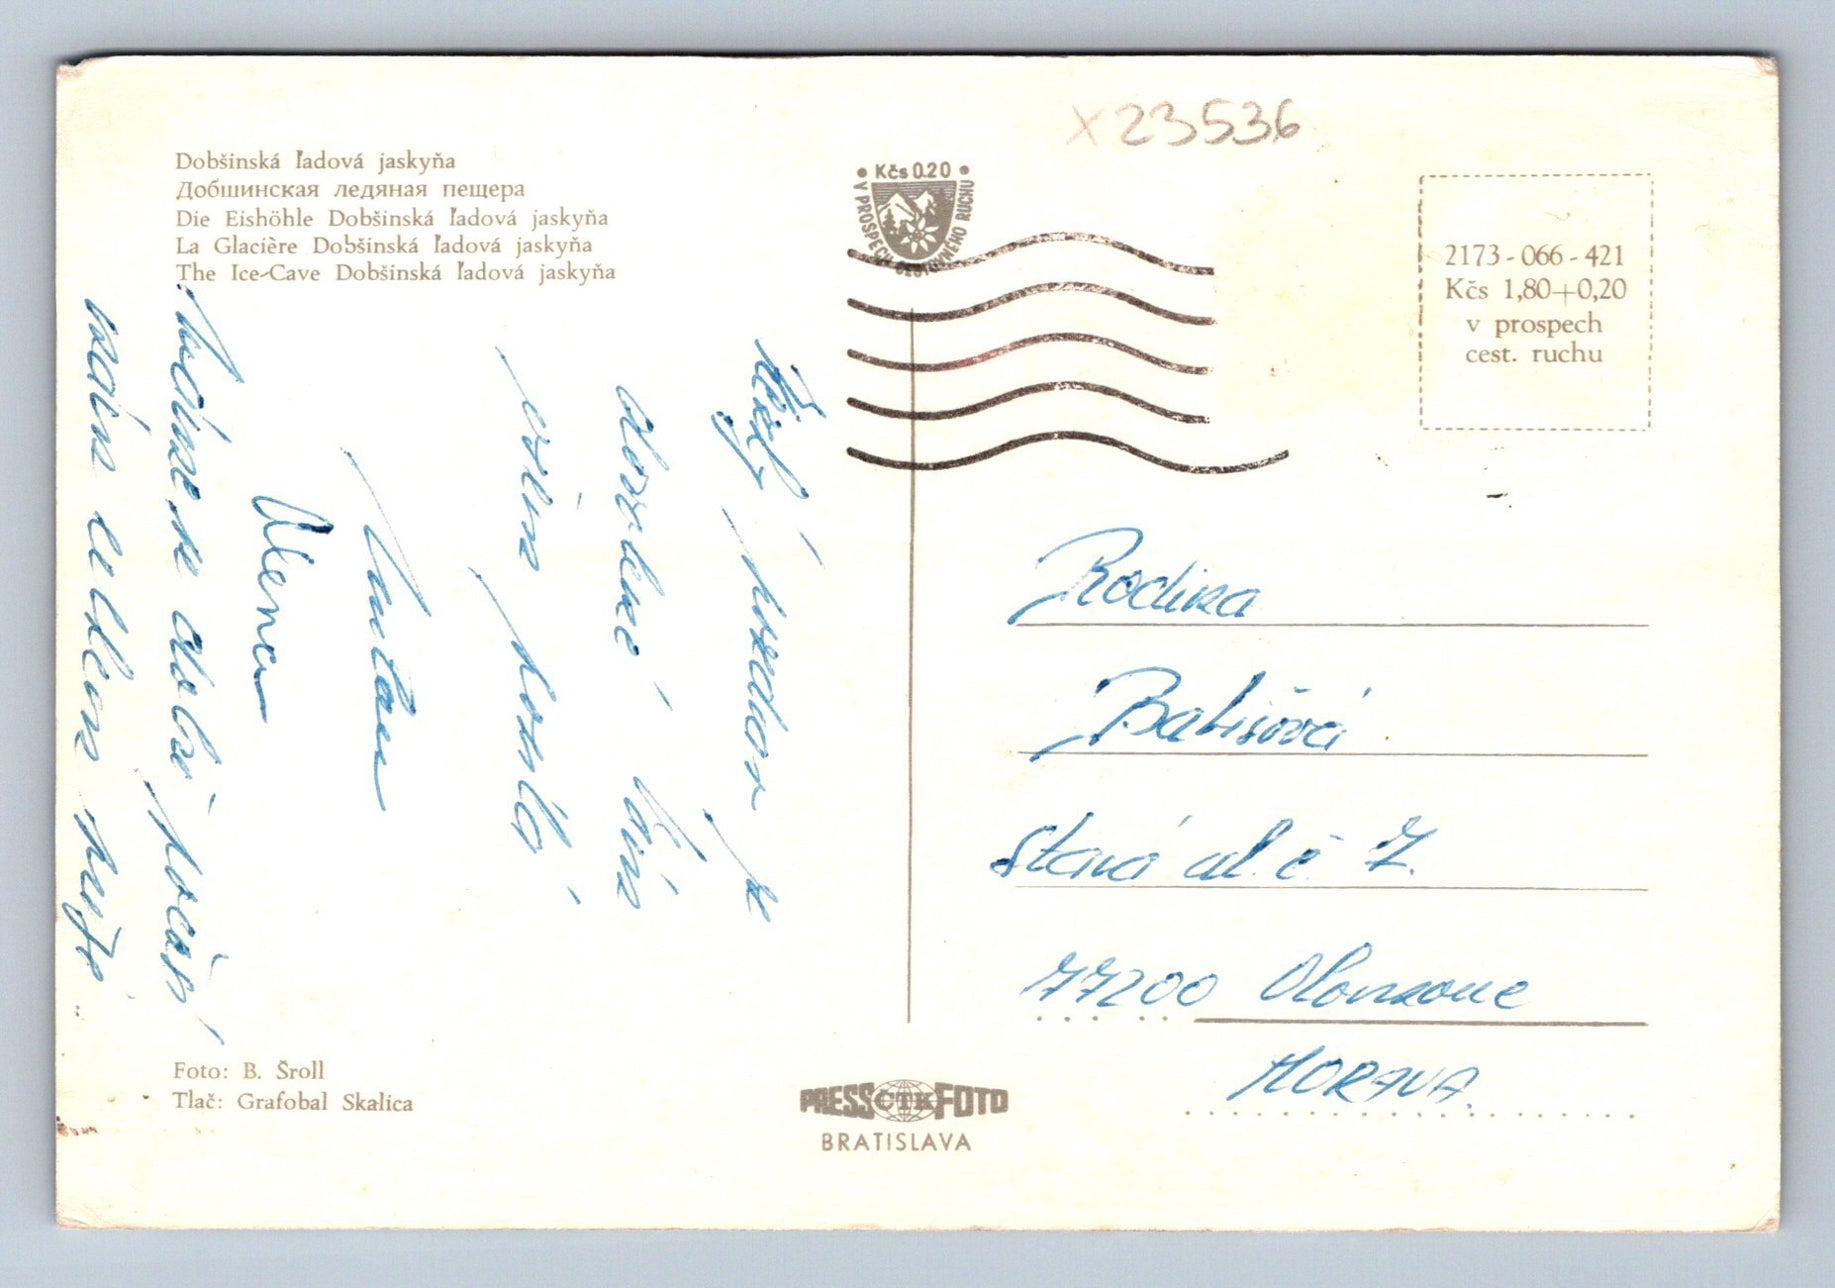 Dobšinská ľadová jaskyňa
Добшинская ледяная пещера
Die Eishöhle Dobšinská ľadová jaskyňa
La Glacière Dobšinská ľadová jaskyňa
The Ice-Cave Dobšinská ľadová jaskyňa
X23536
• Kčs 0.20 •
V PROSPECH CESTOVNÉHO RUCHU
2173-066-421
Kčs 1,80+0,20
v prospech
cest. ruchu
pozdrav z
dovolené Vám
všem posílá
Alena
Rodina
Stará ul. č 7.
77200 Olomouc
MORAVA.
Foto: B. Šroll
Tlač: Grafobal Skalica
PRESS ČTK FOTO
BRATISLAVA